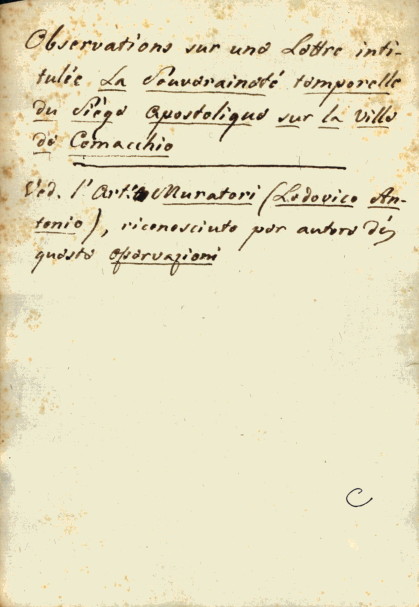 Observations sur une Lettre inti-
tulée La Souveraineté temporelle
du Siège Apostolique sur la Ville
de Comacchio
Ved. l'Art.º Muratori (Lodovico An-
tonio), riconosciuto per autore di
queste Osservazioni
C